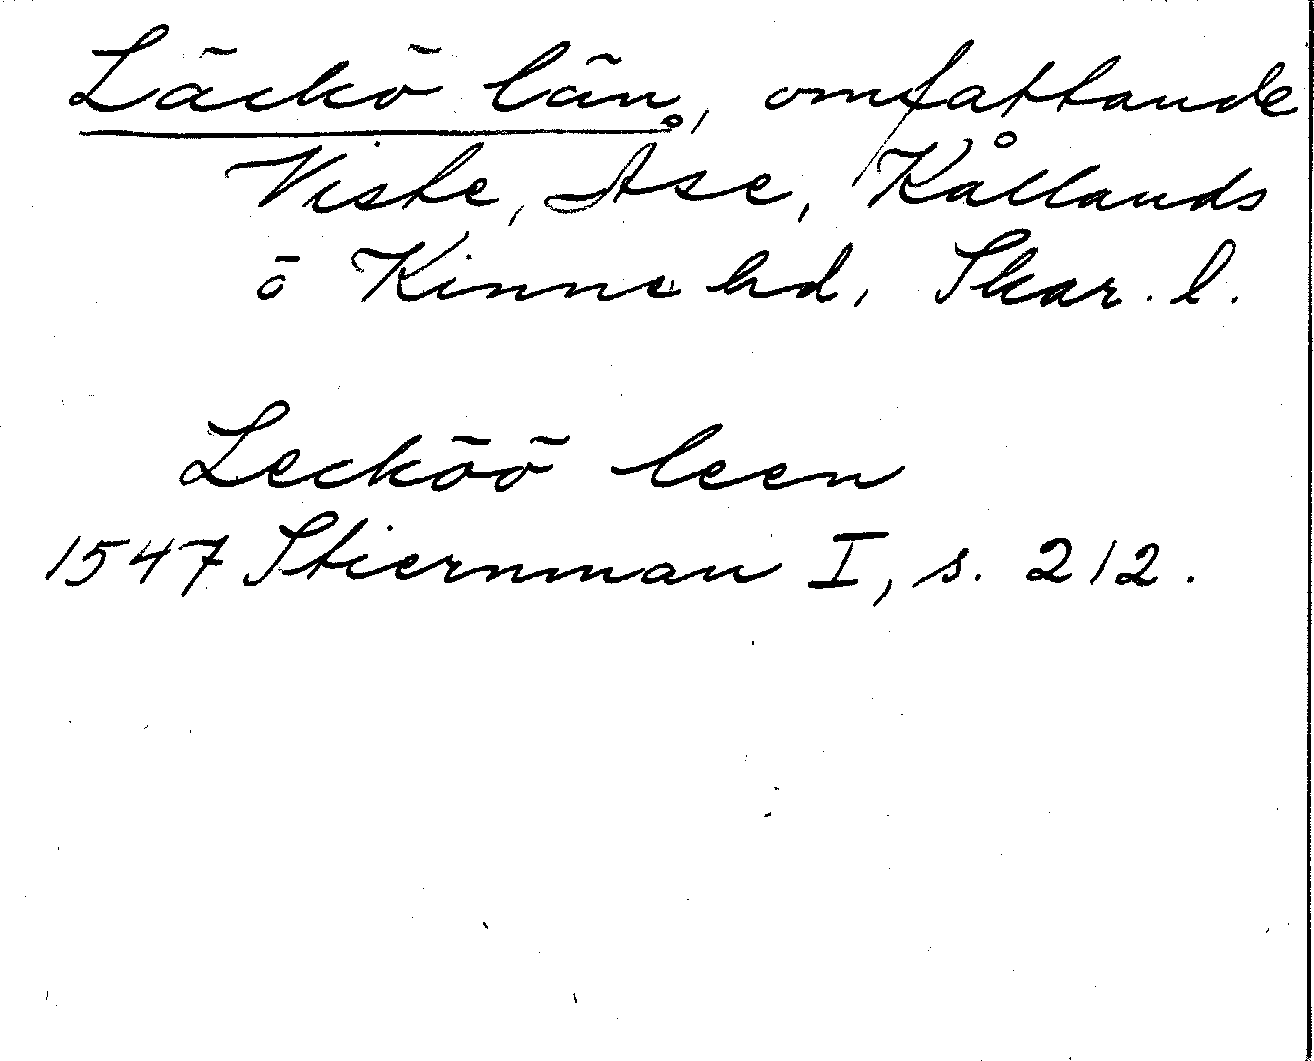 Läckö län, omfattande
Viste, Åse, Kållands
ö Kinne hd, Skar. l.
Lecköö leen
1547 Stiernman I, s. 212.